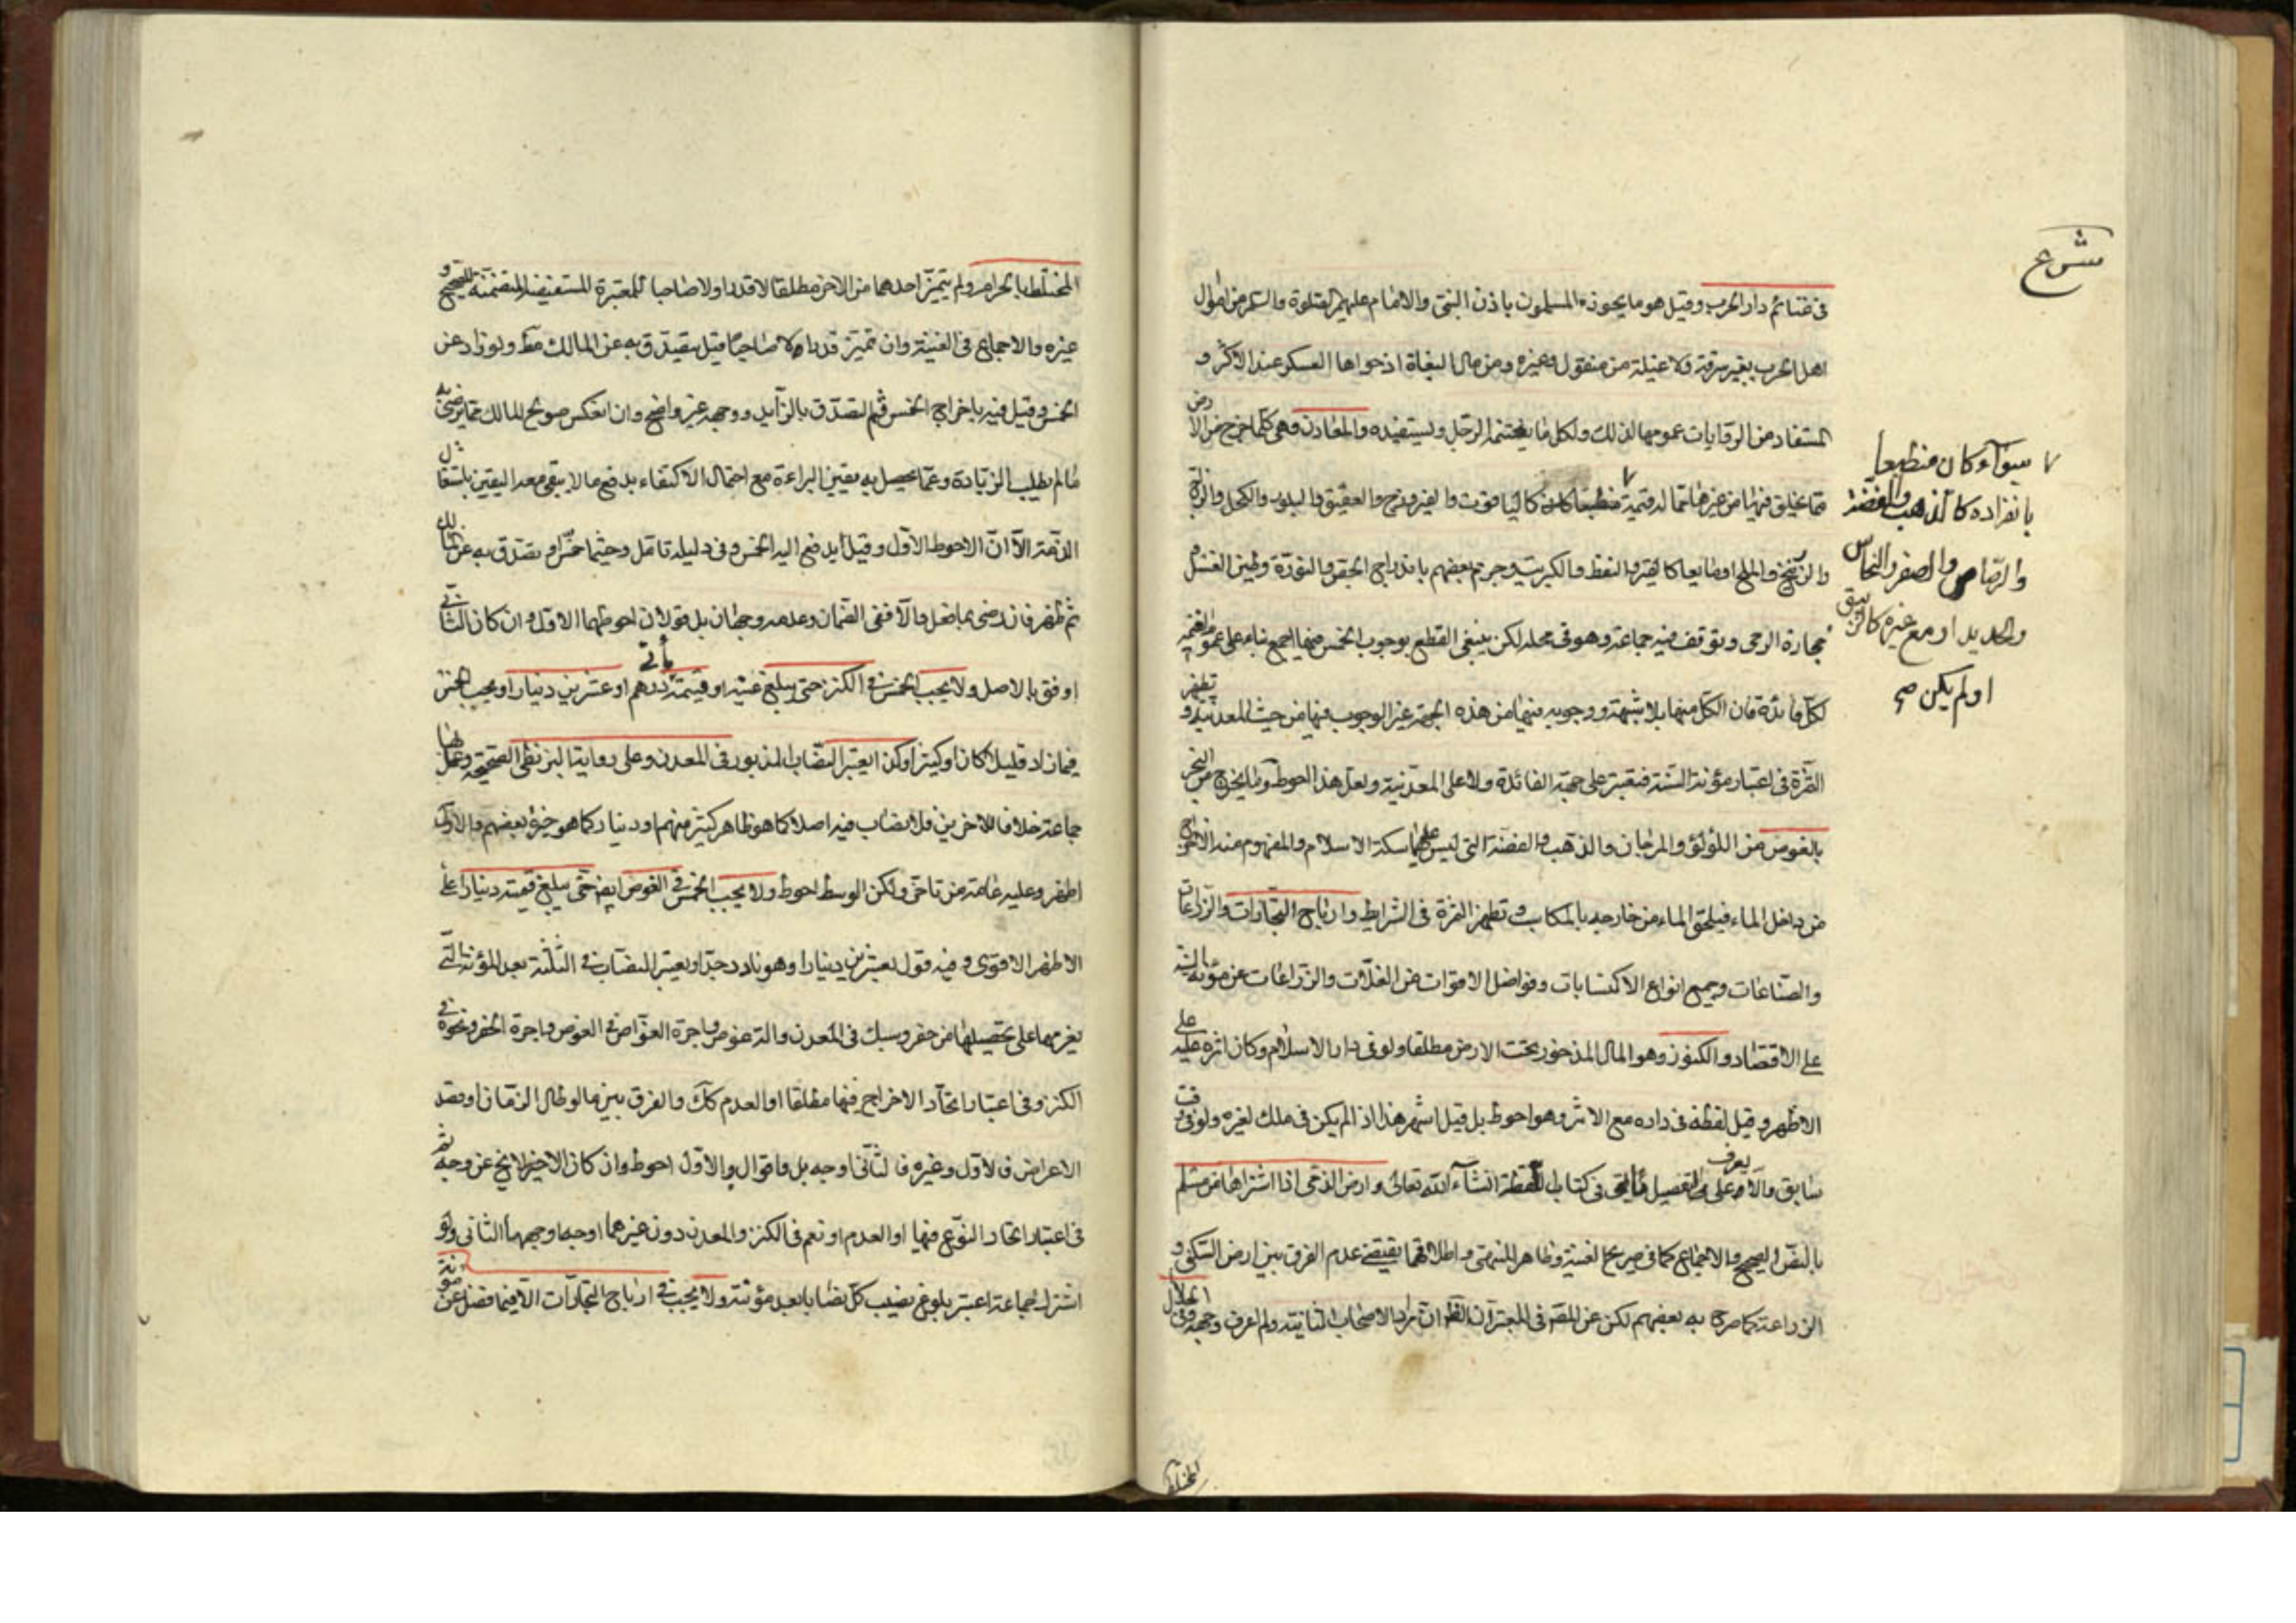 مشروع
في غنائم دار الحرب وقيل هو ما يحوزه المسلمون باذن النبي والامام عليهم الصلوة والسلم من اموال
اهل الحرب بغير سرقة ولا غيلة من منقول وغيره ومن مال البغاة اذ حواها العسكر عند الاكثر و
المستفاد من الروايات عمومها لذلك ولكل ما يغتنمه الرجل ويستفيده والمعادن وهي كلما اخرج من الارض
مما يخلق فيها من غيرها مما له قيمة كالياقوت والفيروزج والعقيق والبلور والكحل والزاج
والزرنيخ والملح او مايعا كالقير والنفط والكبريت وجزم بعضهم باندراج الجص والنورة وطين الغسل
وحجارة الرحى وتوقف فيه جماعة وهو في محله لكن ينبغي القطع بوجوب الخمس فيها اجمع بناء على عموم الغنيمة
لكل فائدة فان الكل منها بلا شبهة ووجوبه فيها من هذه الجهة غير الوجوب فيها من حيث المعدنية و تظهر
الثمرة في اعتبار مؤنة السنة فتعتبر على جهة الفائدة ولا على المعدنية ولعل هذا احوط وما يخرج من البحر
بالغوص من اللؤلؤ والمرجان والذهب والفضة التي ليس عليها سكة الاسلام والمفهوم منه الاخراج
من داخل الماء فيلحق الماء من خارجه بالمكاسب وتظهر الثمرة في الشرايط وارباح التجارات والزراعات
والصناعات وجميع انواع الاكتسابات وفواضل الاقوات من الغلات والزراعات عن مؤنة السنة
على الاقتصاد والكنوز وهو المال المذخور تحت الارض مطلقا ولو في دار الاسلام وكان اثره عليه على
الاظهر وقيل لقطة في داره مع الاثر وهو احوط بل قيل اشهر هذا اذا لم يكن في ملك لغيره ولو في وقت
سابق والا يعرف على التفصيل في كتاب اللقطة انشاء الله تعالى وارض الذمي اذا اشتراها من مسلم
بالنص الصحيح والاجماع كما في صريح الغنية وظاهر المنتهى واطلاقهما يقتضي عدم الفرق بين ارض السكنى و
الزراعة كما صرح به بعضهم لكن عن المصه في المعتبر ان الظ ان مراد الاصحاب الثانية ولم اعرف وجهه وفي الحلال
المختلط
سواء كان منطبعا
بانفراده كالذهب والفضة
والرصاص والصفر والنحاس
والحديد او مع غيره كالزيبق
او لم يكن صح
المختلط بالحرام ولم يتميز احدهما من الاخر مطلقا لا قدرا ولا صاحبا للمعتبرة المستفيضة المتضمنة للصحيح و
غيره والاجماع في الغنية وان تميز قدرا لا صاحبا قيل يتصدق به عن المالك مط ولو زاد عن
الخمس وقيل فيه باخراج الخمس ثم التصدق بالزايد ووجهه غير واضح وان انعكس صولح المالك بما يرضى به
ما لم يطلب الزيادة وعما يحصل به يقين البراءة مع احتمال الاكتفاء بدفع ما لا يبقى معه اليقين باشتغال
الذمة الا ان الاحوط الاول وقيل يدفع اليه الخمس وفي دليله تامل وحيثما يتصدق به عن المالك
ثم ظهر فان رضى بما فعل والا ففي الضمان وعدمه وجهان بل قولان احوطهما الاول وان كان الثاني
اوفق بالاصل ولا يجب الخمس في الكنز حتى يبلغ عينه او قيمته مأتي درهم او عشرين دينارا ويجب الخمس
فيما زاد قليلا كان او كثيرا وكذا يعتبر النصاب المذبور في المعدن وعلى رواية البزنطي الصحيحة وعمل بها
جماعة خلافا للاخرين فلا نصاب فيه اصلا كما هو ظاهر كثير منهم او دينار كما هو خيرة بعضهم والاول
اظهر وعليه عامة من تاخر ولكن الوسط احوط ولا يجب الخمس في الغوص ايضا حتى يبلغ قيمته دينارا على
الاظهر الاقوى وفيه قول بعشرين دينارا وهو نادر جدا ويعتبر النصاب في الثلثة بعد المؤنة التي
يغرمها على تحصيلها من حفر وسبك في المعدن والة غوص واجرة الغواص في الغوص واجرة الحفر ونحوه في
الكنز وفي اعتبار اتحاد الاخراج فيها مطلقا او العدم كك والفرق بين ما لو طال الزمان او قصد
الاعراض فالاول وغيره فالثاني اوجه بل واقوال والاول احوط وان كان الاخير لا يخ عن وجه ثم
في اعتبار اتحاد النوع فيها او العدم او نعم في الكنز والمعدن دون غيرهما اوجه اوجهها الثاني ولو
اشترك جماعة اعتبر بلوغ نصيب كل نصابا بعد مؤنته ولا يجب في ارباح التجارات الا فيما فضل عن مؤنة